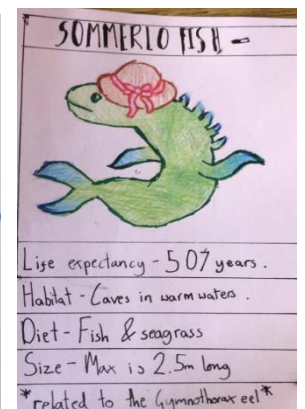 SOMMERLO FISH -
Life expectancy - 507 years.
Habitat - Caves in warm waters.
Diet - Fish & seagrass
Size - Max is 2.5m long
*related to the Gymnothorax eel*